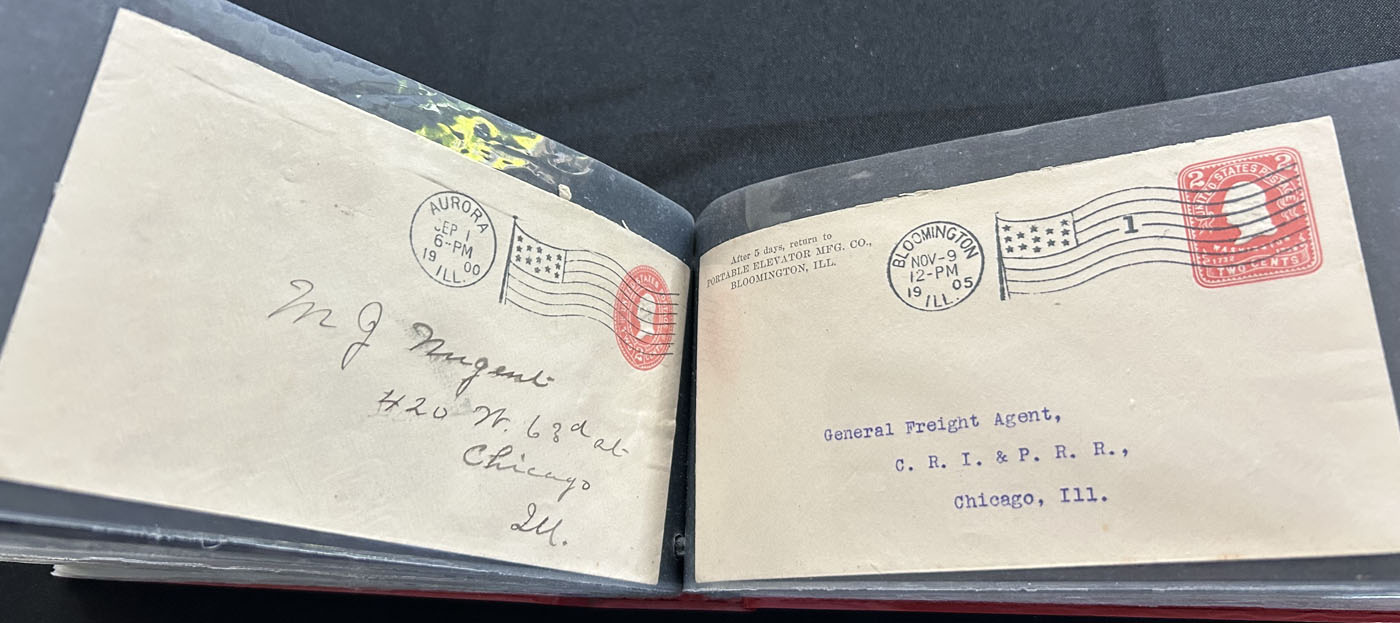 AURORA
SEP 1
6-PM
19 00
ILL.
UNITED STATES
M J Nugent
420 W. 63d st
Chicago
Ill.
After 5 days, return to
PORTABLE ELEVATOR MFG. CO.,
BLOOMINGTON, ILL.
BLOOMINGTON
NOV-9
12-PM
19 05
ILL.
1
2 2
UNITED STATES POSTAGE
WASHINGTON
TWO CENTS
General Freight Agent,
C. R. I. & P. R. R.,
Chicago, Ill.